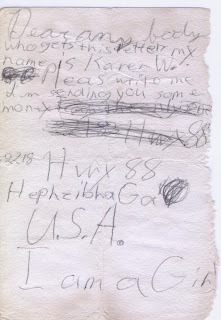 Dear any body
who gets this letter my
name is Karen W.
Pleas write to me
I am sending you some
money
Hwx 88
Hwx 88
Hephzibha Ga
U.S.A.
I am a Girl